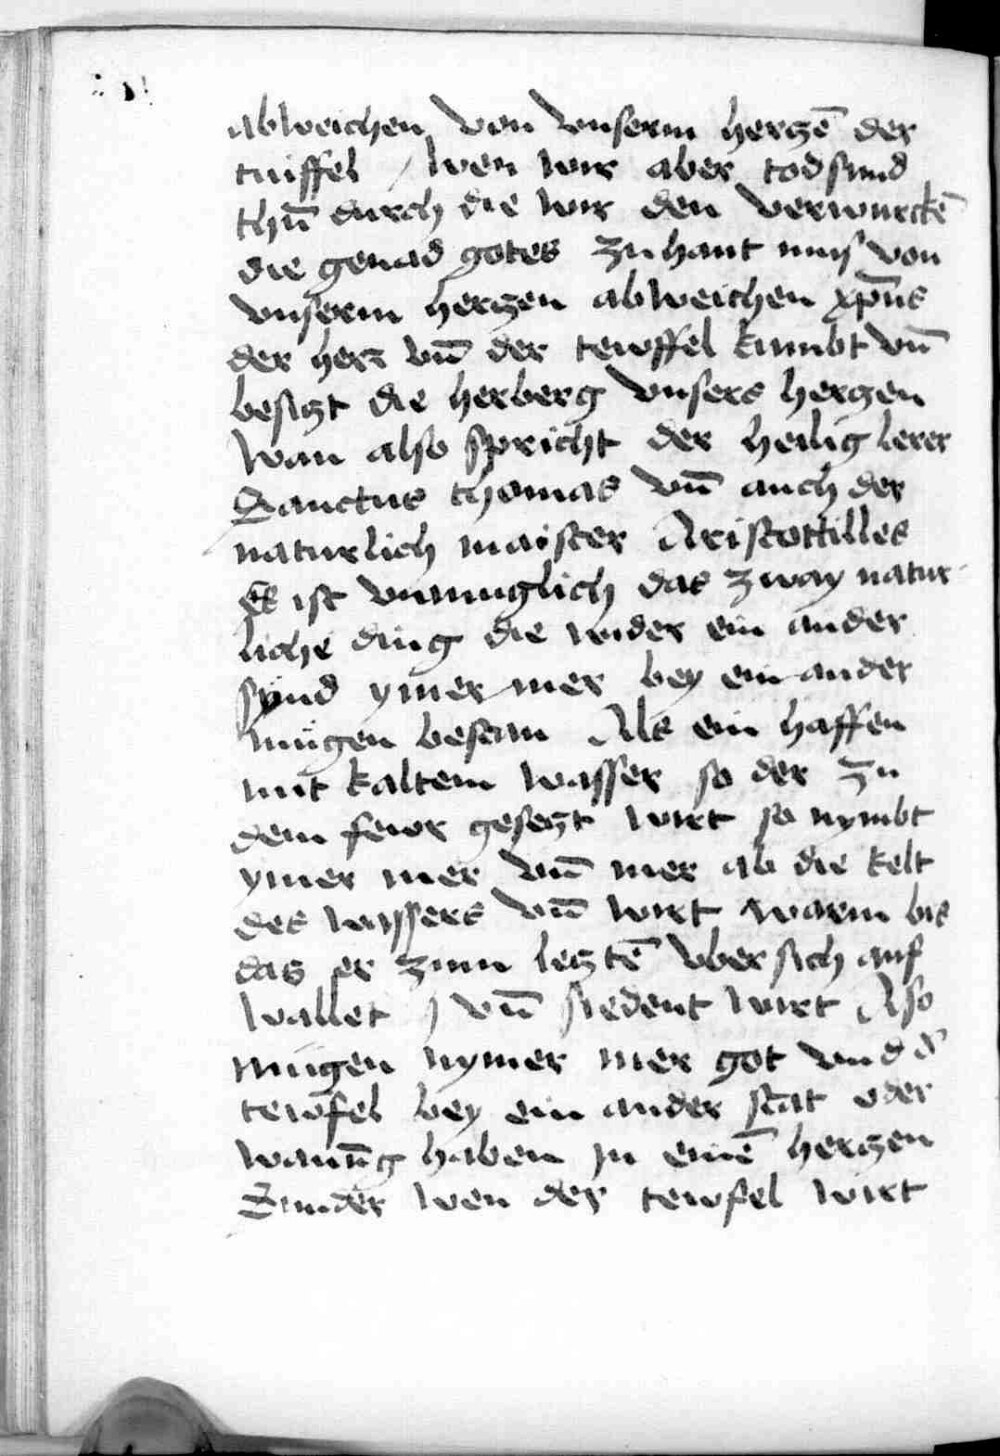 abweichen von vnserm herczē der
tuiffel / wen wir aber todsund
thūn durch die wir den verwurckē
die genad gotes zu hant mus von
vnserm herczen abweichen xp̄us
der herr vn̄ der tewffel kumbt vn̄
besiczt die herberg vnsers herczen
wan also spricht der heilig lerer
Sanctus thomas vn̄ auch der
naturlich maister Aristottilles
Es ist vnmuglich das zway natur
liche ding die wider ein ander
synd ymer mer bey ein ander
mügen bestan Als ein haffen
mit kaltem wasser so der zu
dem fewr geseczt wirt so nymbt
ymer mer vn̄ mer ab die kelt
des wassers vn̄ wirt warm bis
das er zum leczte̅ vber sich auf
wallet / vn̄ siedent wirt Also
mügen nymer mer got vnd d'
tewfel bey ein ander stat oder
wanu̅g haben jn eine̅ herczen
Sunder wen der tewfel wirt